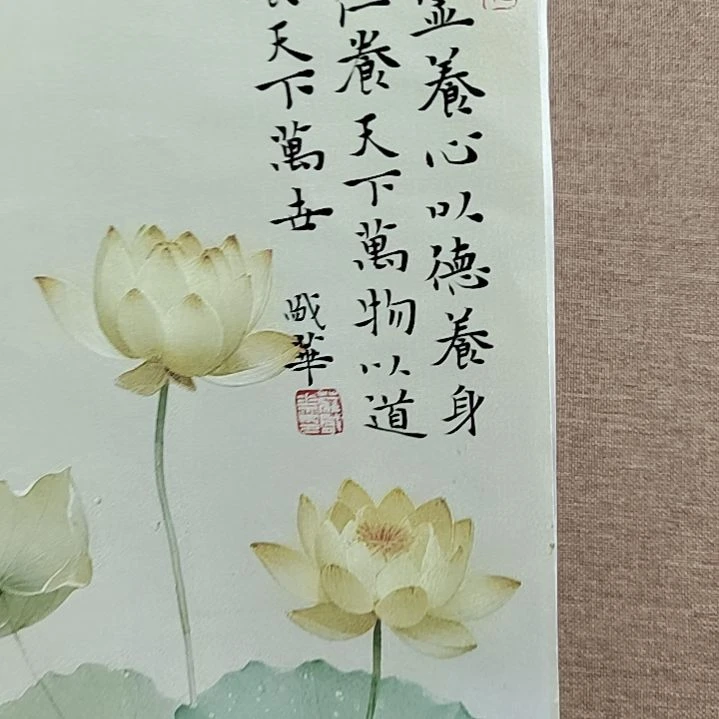 養心以德養身
仁養天下萬物以道
天下萬世
華